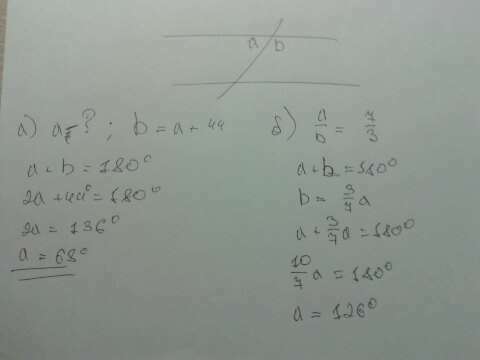 a b
а) a = ? ; b = a + 44
a + b = 180°
2a + 44° = 180°
2a = 136°
a = 68°
б) a/b = 7/3
a + b = 180°
b = 3/7 a
a + 3/7 a = 180°
10/7 a = 180°
a = 126°